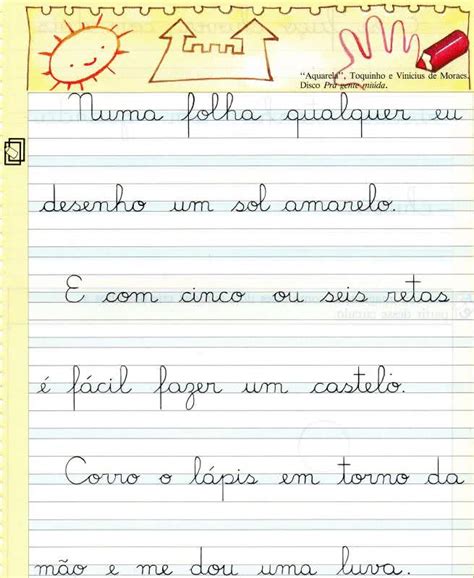 “Aquarela”, Toquinho e Vinícius de Moraes.
Disco Pra gente miúda.
Numa folha qualquer eu
desenho um sol amarelo.
E com cinco ou seis retas
é fácil fazer um castelo.
Corro o lápis em torno da
mão e me dou uma luva.